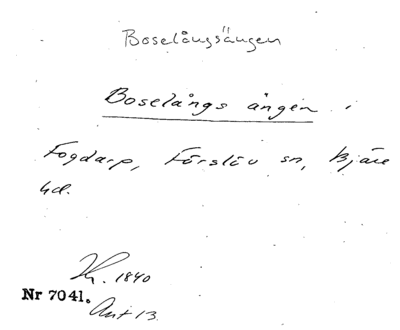 Boselångsängen
Boselångs ängen,
Fogdarp, Förslöv sn, Bjäre
hd.
K. 1840
Nr 7041.
Akt 13.